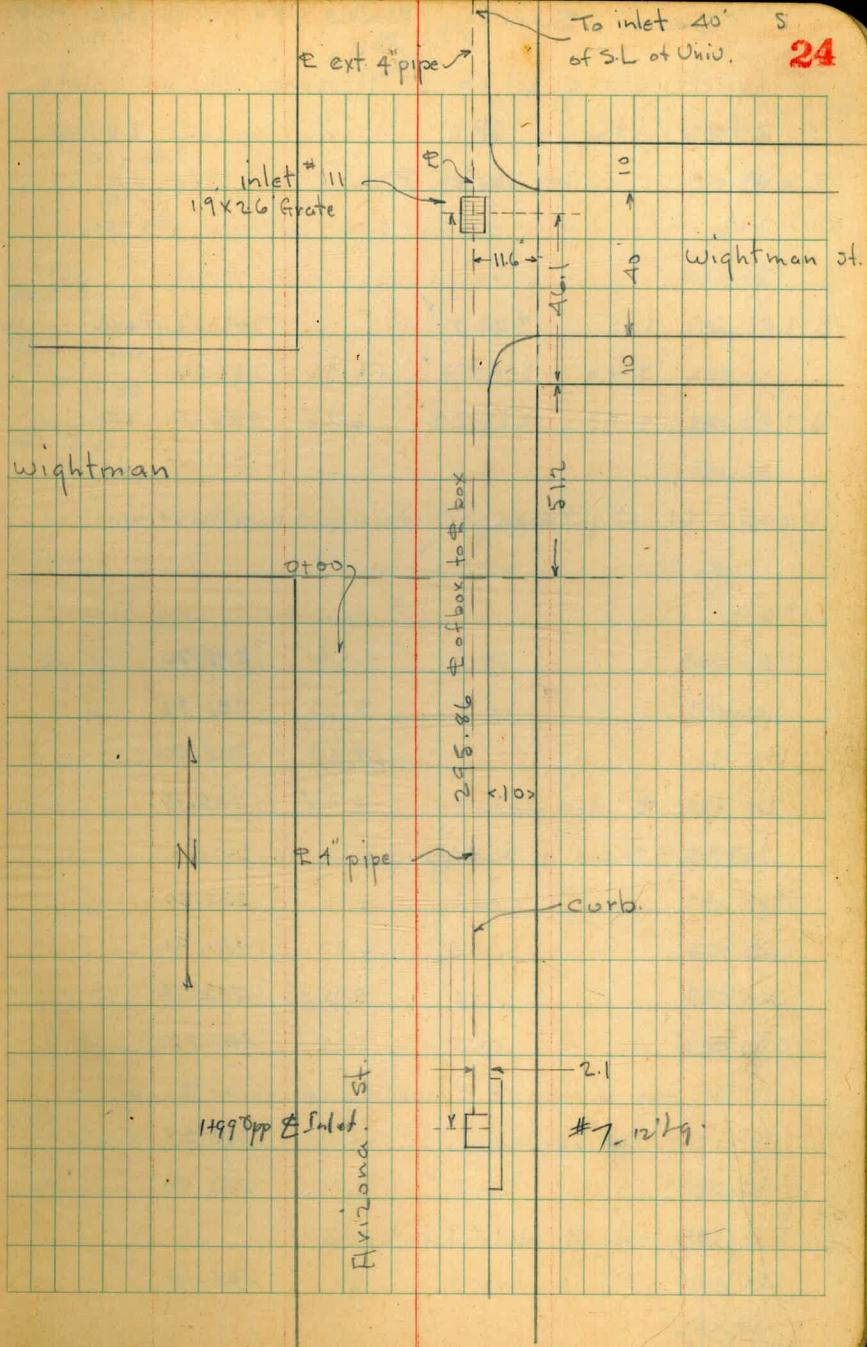 To inlet 40' S
of S.L of Univ.
24
℄ ext. 4" pipe
℄
inlet # 11
1.9 X 2.6 Grate
10
11.6'
46.1
40'
Wightman St.
10
Wightman
51.2
0+00
295.86 ℄ of box to ℄ box
<10>
N
℄ 4" pipe
curb.
2.1
1+99 Opp ℄ Inlet.
#7_12' Lg.
Arizona St.